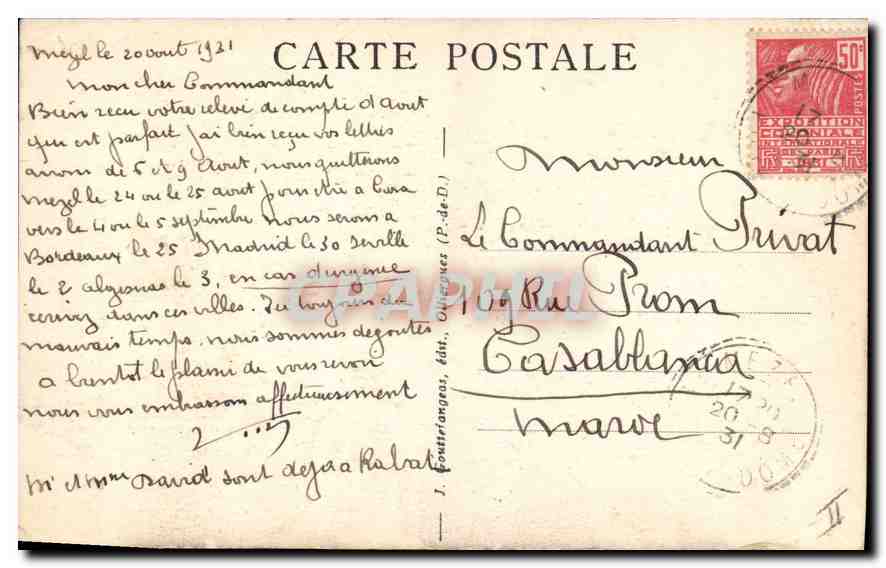 CARTE POSTALE
Mezel le 20 aout 1931
Mon cher Commandant
Bien reçu votre relevé de compte d'Aout
qui est parfait j'ai bien reçu vos lettres
avion de 5 et 9 Aout, nous quitterons
Mezel le 24 ou le 25 aout pour être à Casa
vers le 4 ou le 5 septembre nous serons à
Bordeaux le 25 Madrid le 30 Seville
le 2 algesiras le 3, en cas d'urgence
écrivez dans ces villes. Ici toujours du
mauvais temps nous sommes dégoutés
a bientot le plaisir de vous revoir
nous vous embrassons affectueusement
Mr et Mme David sont deja a Rabat
J. Gouttefangeas, édit., Olliergues (P.-de-D.)
50c
POSTES
EXPOSITION
COLONIALE
INTERNATIONALE
PARIS 1931
Monsieur
Le Commandant Privat
109 Rue Prom
Casablanca
Maroc
20-8
31
II
CPAPHIL